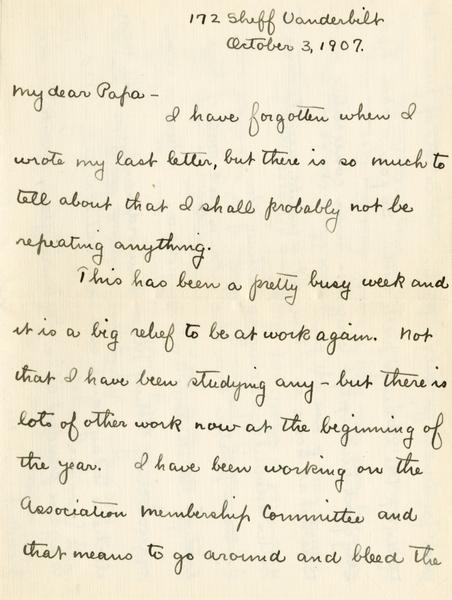 172 Sheff Vanderbilt
October 3, 1907.
My dear Papa –
I have forgotten when I
wrote my last letter, but there is so much to
tell about that I shall probably not be
repeating anything.
This has been a pretty busy week and
it is a big relief to be at work again. Not
that I have been studying any – but there is
lots of other work now at the beginning of
the year. I have been working on the
Association Membership Committee and
that means to go around and bleed the